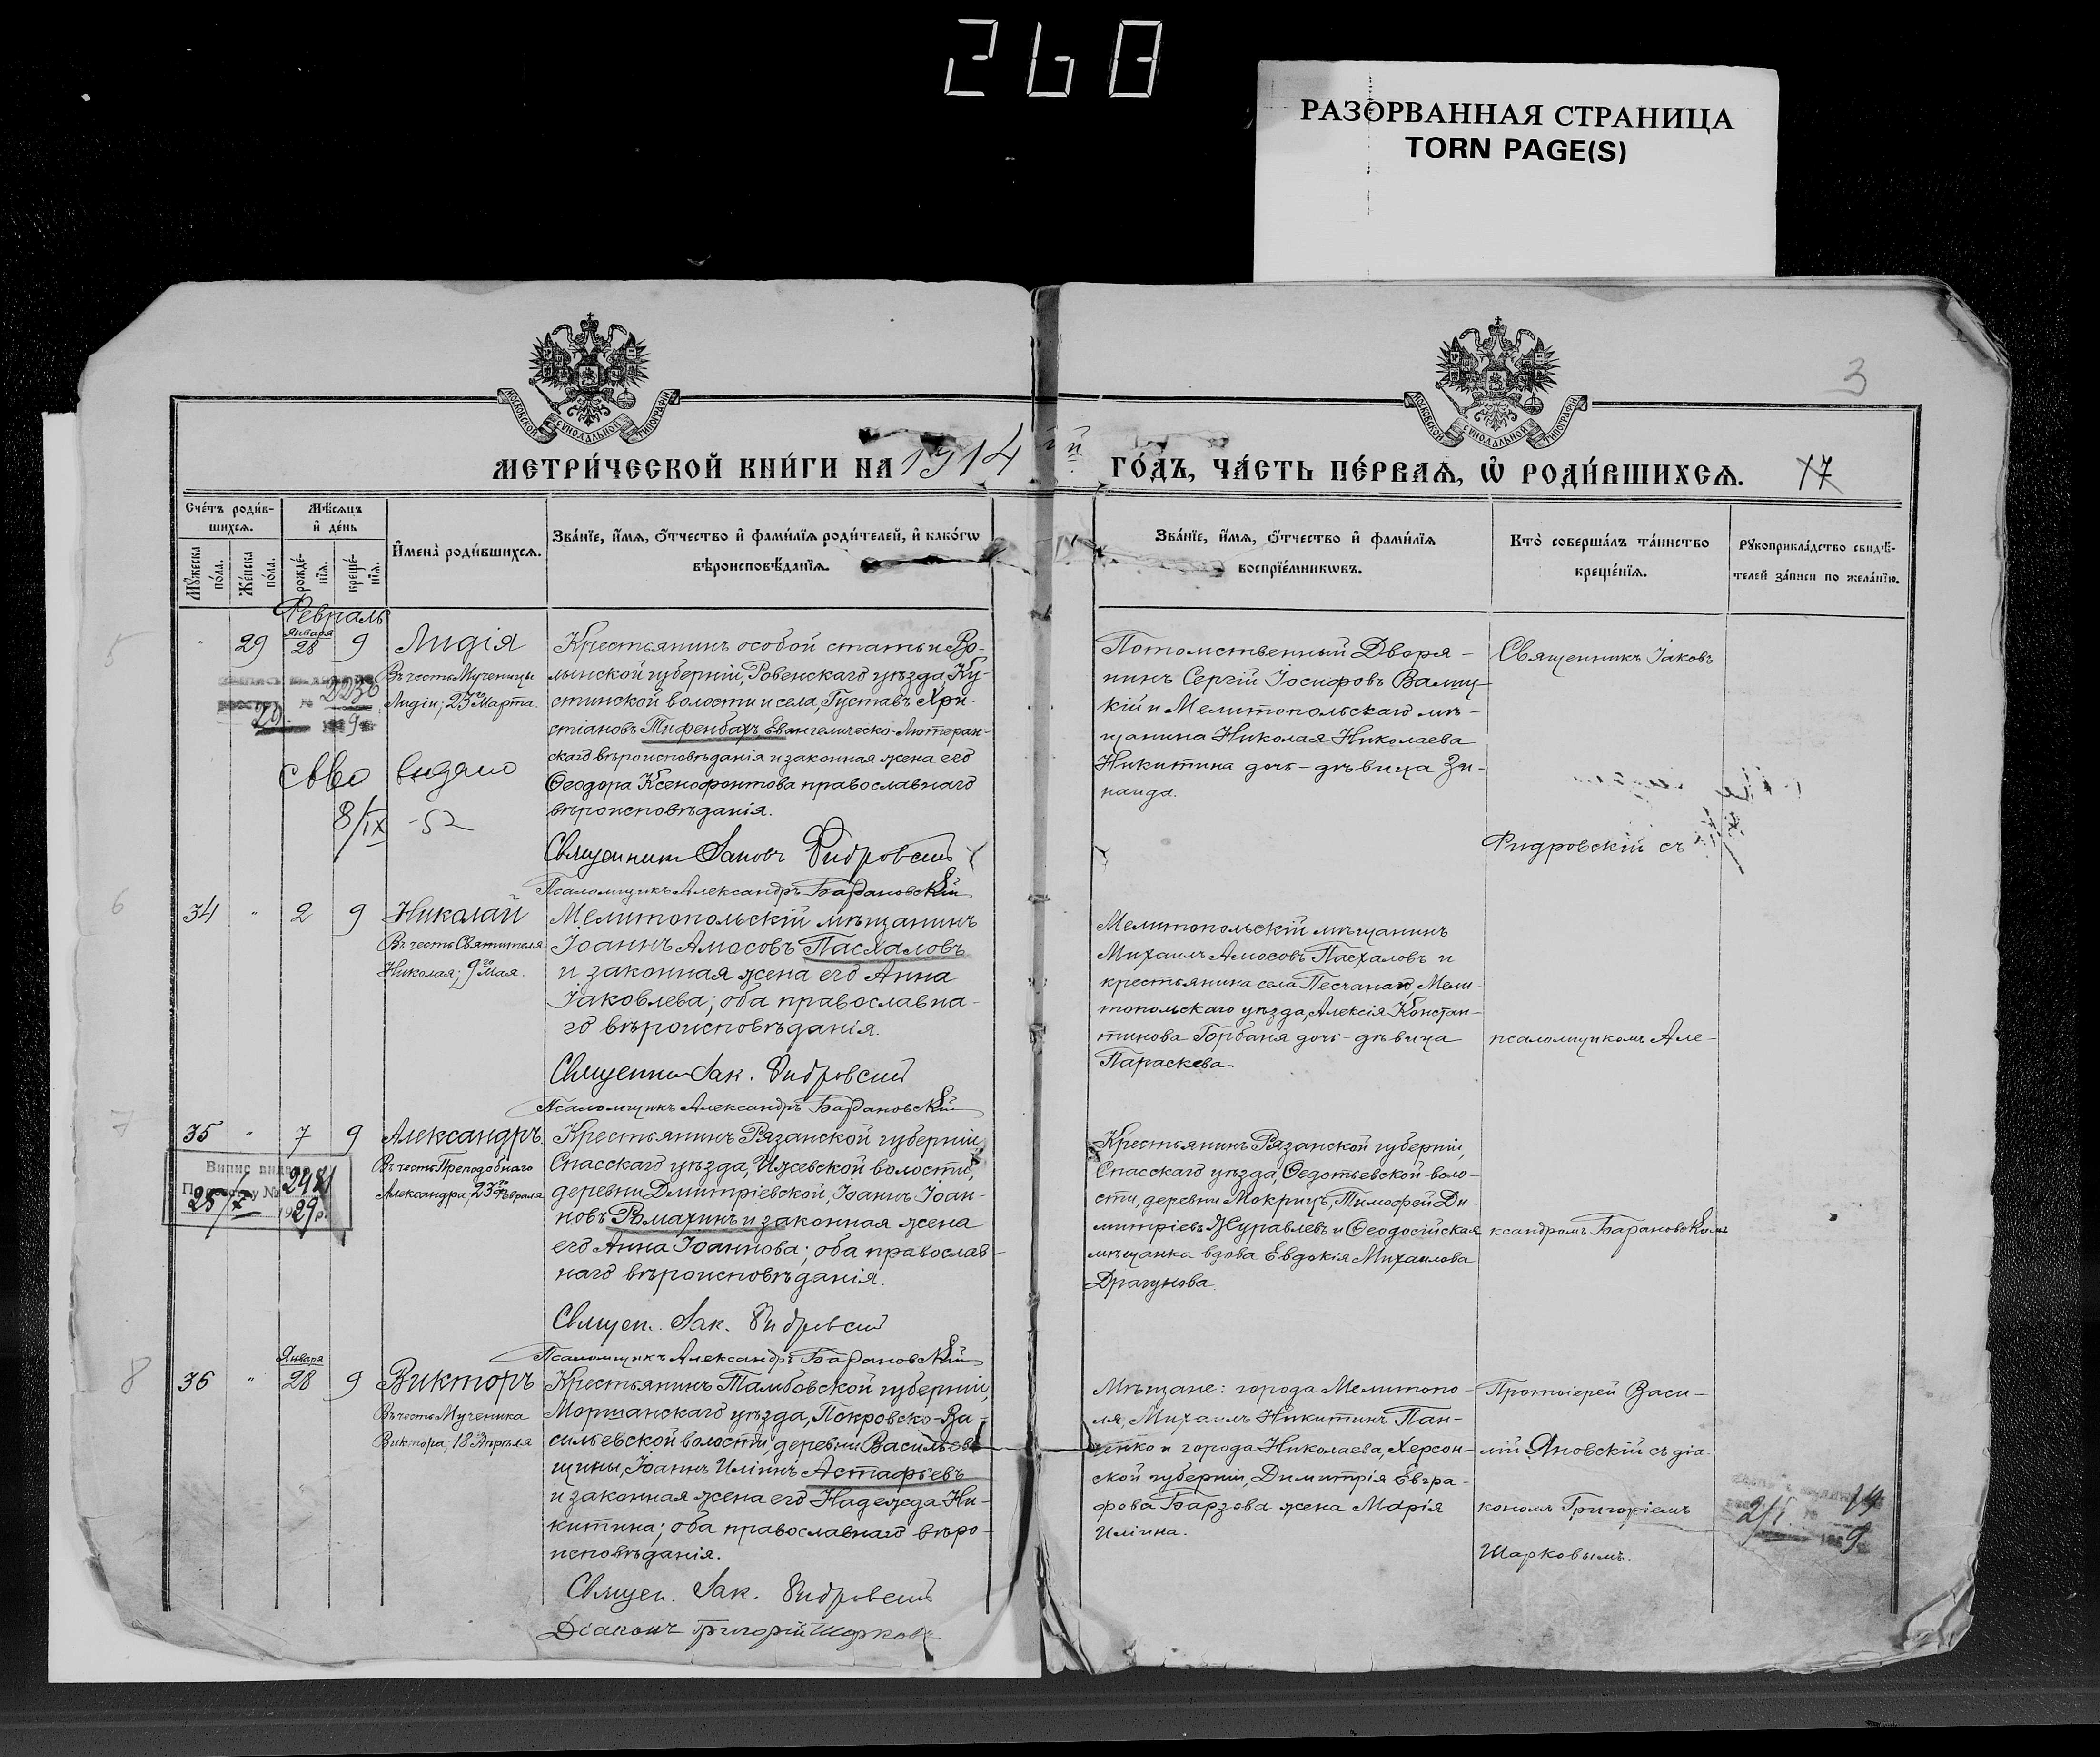 268
РАЗОРВАННАЯ СТРАНИЦА
TORN PAGE(S)
МОСКОВСКОЙ СѴНОДАЛЬНОЙ ТИПОГРАФІИ
МОСКОВСКОЙ СѴНОДАЛЬНОЙ ТИПОГРАФІИ
3
МЕТРИ́ЧЕСКОЙ КНИ́ГИ НА 1914 й ГО́ДЪ, ЧА́СТЬ ПЕ́РВАѦ, Ѡ҆ РОДИ́ВШИХСѦ. 17
Сче́тъ роди́в-
шихсѧ.
Мꙋ́жеска
по́ла.
Же́нска
по́ла.
Мѣ́сѧцъ
и҆ де́нь
рожде́-
нїѧ.
креще́-
нїѧ.
И҆мена̀ роди́вшихсѧ.
Зва́нїе, и҆́мѧ, ѻ҆́тчество и҆ фами́лїѧ роди́телей, и҆ како́гѡ
вѣроисповѣ́данїѧ.
Зва́нїе, и҆́мѧ, ѻ҆́тчество и҆ фами́лїѧ
воспрїе́мникѡвъ.
Кто̀ соверша́лъ та́инство
креще́нїѧ.
Рꙋкоприкла́дство свидѣ́-
телей за́писи по жела́нїю.
Февраль
5
29
января
28
9
Лидія
Въ честь Мученицы
Лидіи; 23го Марта.
2236
29
9
св-во выдано
8/IX -52
Крестьянинъ особой статьи Во-
лынской губерніи, Ровенскаго уѣзда, Ку-
стинской волости и села, Густавъ Хри-
стіановъ Тифенбахъ, Евангелическо-Лютеран-
скаго вѣроисповѣданія и законная жена его
Ѳеодора Ксенофонтова православнаго
вѣроисповѣданія.
Священникъ Іаковъ Фидровскій
Псаломщикъ Александръ Барановскій
Потомственный Дворя-
нинъ Сергій Іосифовъ Валиц-
кій и Мелитопольскаго мѣ-
щанина Николая Николаева
Никитина дочь-дѣвица Зи-
наида.
Священникъ Іаковъ
Фидровскій съ
6
34
"
2
9
Николай
Въ честь Святителя
Николая; 9го Мая.
Мелитопольскій мѣщанинъ
Іоаннъ Амосовъ Пасхаловъ
и законная жена его Анна
Іаковлева; оба православна-
го вѣроисповѣданія.
Священникъ Іак. Фидровскій
Псаломщикъ Александръ Барановскій
Мелитопольскій мѣщанинъ
Михаилъ Амосовъ Пасхаловъ и
крестьянина села Песчанаго, Мели-
топольскаго уѣзда, Алексія Констан-
тинова Горбаня дочь-дѣвица
Параскева.
псаломщикомъ Але-
7
35
"
7
9
Александръ
Въ честь Преподобнаго
Александра; 23го Февраля
Випис видано
По реєстру № 2481
25/X 1929 р.
Крестьянинъ Рязанской губерніи,
Спасскаго уѣзда, Ижевской волости,
деревни Дмитріевской, Іоаннъ Іоан-
новъ Ромахинъ и законная жена
его Анна Іоаннова; оба православ-
наго вѣроисповѣданія.
Священ. Іак. Фидровскій
Псаломщикъ Александръ Барановскій
Крестьянинъ Рязанской губерніи,
Спасскаго уѣзда, Ѳедотьевской воло-
сти, деревни Мокрицъ, Тимофей Ди-
митріевъ Журавлевъ и Ѳеодосійская
мѣщанка вдова Евдокія Михаилова
Драгунова.
ксандромъ Барановскимъ
8
36
"
Января
28
9
Викторъ
Въ честь Мученика
Виктора; 18го Апрѣля
Крестьянинъ Тамбовской губерніи,
Моршанскаго уѣзда, Покровско-Ва-
сильевской волости, деревни Васильев-
щины, Іоаннъ Иліинъ Астафьевъ
и законная жена его Надежда Ни-
китина; оба православнаго вѣро-
исповѣданія.
Священ. Іак. Фидровскій
Діаконъ Григорій Шарковъ
Мѣщане: города Мелитопо-
ля, Михаилъ Никитинъ Пан-
ченко и города Николаева, Херсон-
ской губерніи, Димитрія Евгра-
фова Барзова жена Марія
Иліина.
Протоіерей Васи-
лій Яновскій съ діа-
кономъ Григоріемъ
Шарковымъ.
2/I 14
9